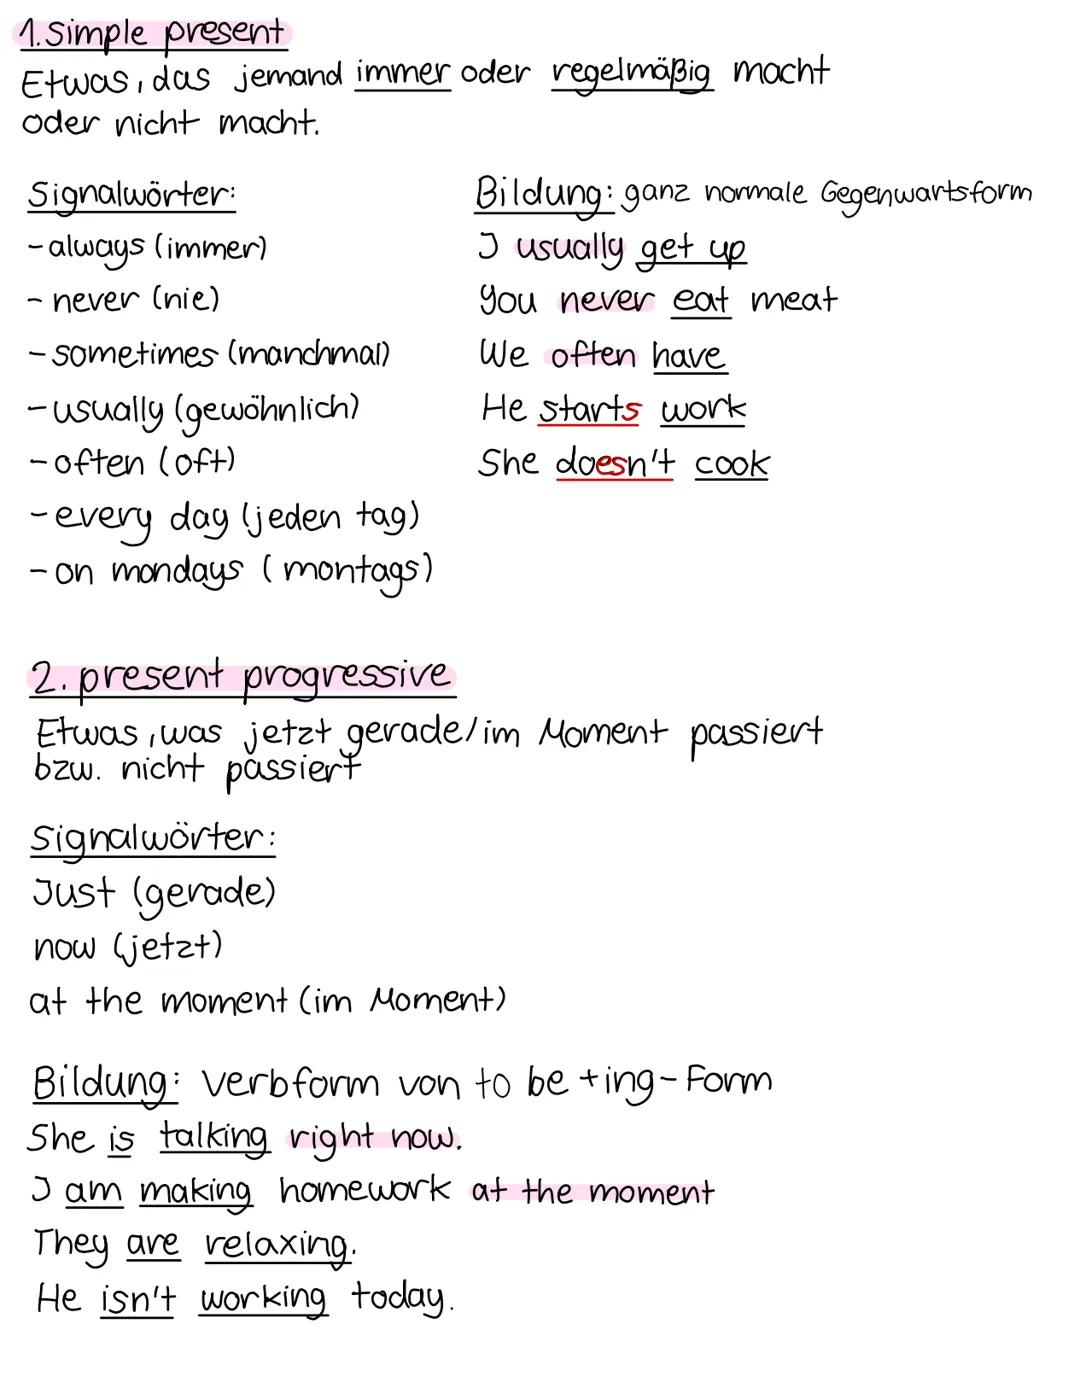 1. Simple present
Etwas, das jemand immer oder regelmäßig macht
oder nicht macht.
Signalwörter:
- always (immer)
- never (nie)
- sometimes (manchmal)
- usually (gewöhnlich)
- often (oft)
- every day (jeden tag)
- on mondays (montags)
Bildung: ganz normale Gegenwartsform
I usually get up
You never eat meat
We often have
He starts work
She doesn't cook
2. present progressive
Etwas, was jetzt gerade/im Moment passiert
bzw. nicht passiert
Signalwörter:
Just (gerade)
now (jetzt)
at the moment (im Moment)
Bildung: Verbform von to be +ing-Form
She is talking right now.
I am making homework at the moment
They are relaxing.
He isn't working today.